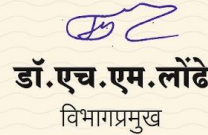 डॉ.एच.एम.लोंढे
विभागप्रमुख